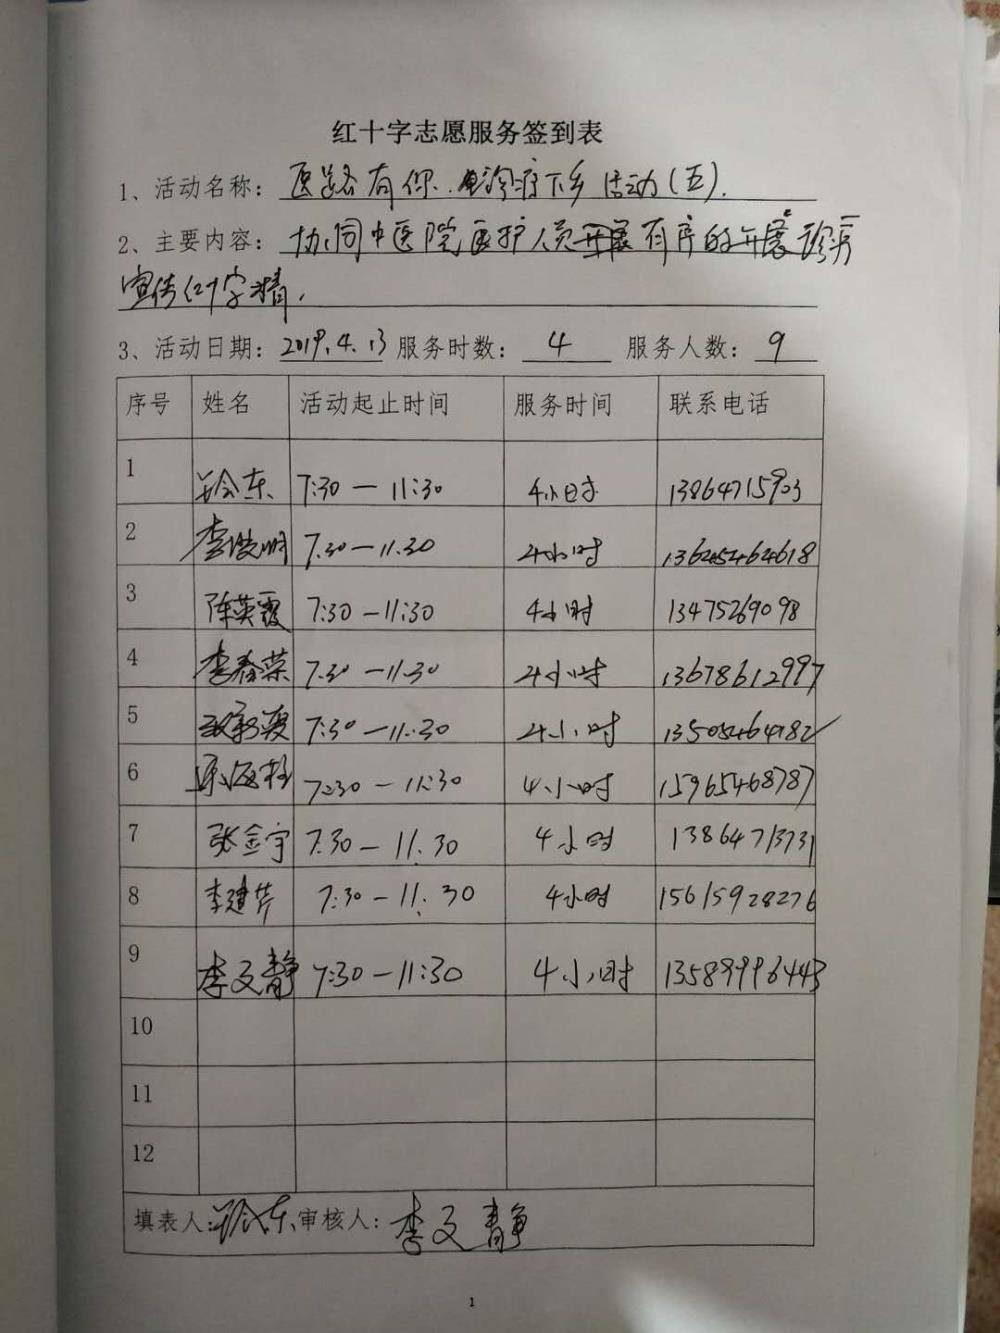 红十字志愿服务签到表
1、活动名称：医路有你.诊疗下乡活动(五).
2、主要内容：协同中医院医护人员有序的开展诊疗
宣传红十字精.
3、活动日期：2019.4.13 服务时数：4 服务人数：9
序号 姓名 活动起止时间 服务时间 联系电话
1 7:30—11:30 4小时 13864715903
2 李俊明 7.30—11.30 4小时 13645464618
3 陈英霞 7:30—11:30 4小时 13475269098
4 李春荣 7.30—11.30 4小时 13678612997
5 7:30—11.30 4小时 13505464182
6 7:30—11:30 4小时 15965468787
7 张金宇 7.30—11.30 4小时 13864713731
8 李建芹 7:30—11.30 4小时 15615928276
9 李文静 7:30—11:30 4小时 13589996443
10
11
12
填表人: 审核人: 李文静
1